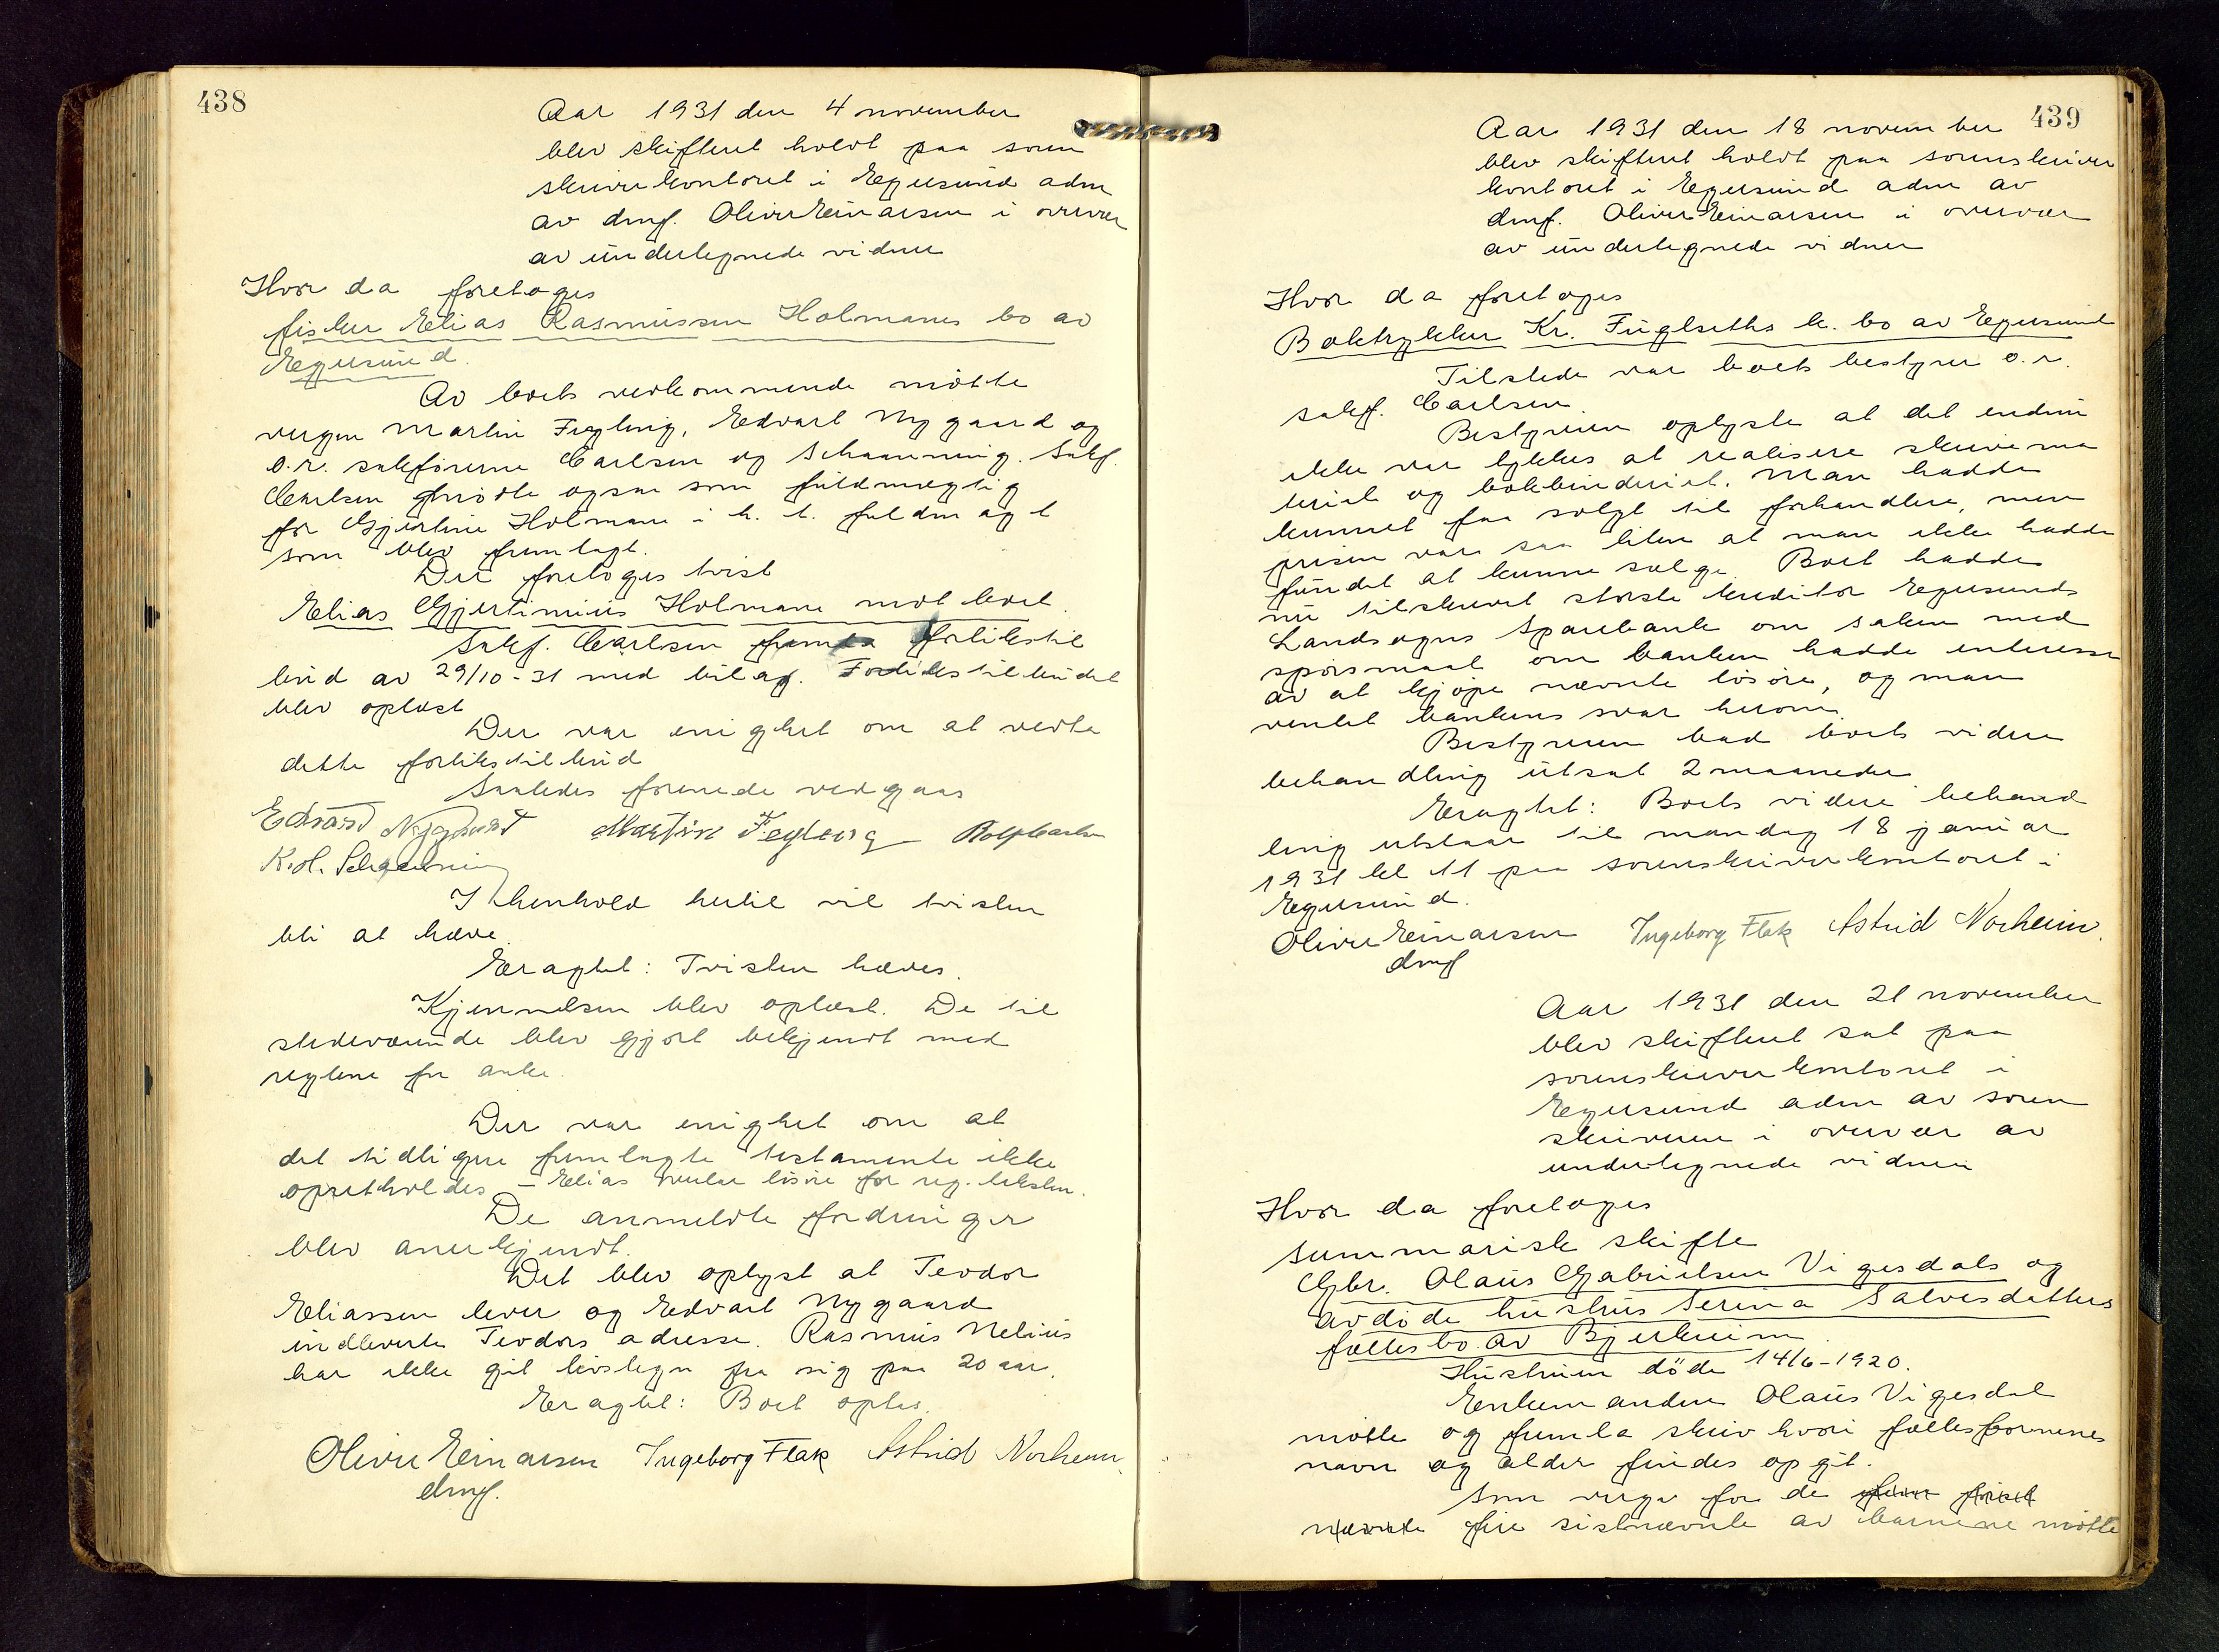 438
Aar 1931 den 4 november
blev skifteret holdt paa soren
skriverkontoret i Egersund adm
av dmf. Oliver Einarsen i overvær
av undertegnede vidner
Hvor da foretoges
fisker Elias Rasmussen Holmanes bo av
Egersund.
Av boets vedkommende møtte
vergen Martin Fegling, Edvart Nygaard og
o.r. sakførerne Carlsen og Schanning. Sakf.
Carlsen møtte ogsaa som fuldmægtig
for Gjertine Holmane i h. t. fuldmagt
som blev fremlagt.
Der foretoges tvist
Elias Gjertinius Holmane mot boet.
Sakf. Carlsen fremla forlikstil
bud av 29/10-31 med bilag. Forlikstilbudet
blev oplæst
Der var enighet om at vedta
dette forlikstilbud
Saaledes forenede vedgaas
Edvard Nygaard Martin Fegling Rolf Carlsen
K. H. Schanning
I henhold hertil vil tvisten
bli at hæve.
Eragtet: Tvisten hæves.
Kjennelsen blev oplæst. De til
stedeværende blev gjort bekjendt med
reglene for anke.
Der var enighet om at
det tidligere fremlagte testamente ikke
opretholdes – Elias løsøre for reg. teksten.
De anmeldte fordringer
blev anerkjendt.
Det blev oplyst at Teodor
Eliassen lever og Edvart Nygaard
indleverte Teodors adresse. Rasmus Nelius
har ikke git livstegn fra sig paa 20 aar.
Eragtet: Boet optas.
Oliver Einarsen Ingeborg Flak Astrid Norheim
dmf.
439
Aar 1931 den 18 november
blev skifteret holdt paa sorenskriver
kontoret i Egersund adm av
dmf. Oliver Einarsen i overvær
av undertegnede vidner
Hvor da foretoges
Boktrykker Kr. Fuglseths k. bo av Egersund
Tilstede var boets bestyrer o.r.
sakf. Carlsen.
Bestyreren oplyste at det endnu
ikke var lykkes at realisere skrivema
teriel og bokbinderiet. Man hadde
kunnet faa solgt til forhandlere, men
prisen var saa liten at man ikke hadde
fundet at kunne sælge. Boet hadde
nu tilskrevet største kreditor Egersunds
Landsogns Sparebank om saken med
spørsmaal om banken hadde interesse
av at kjøpe nævnte løsøre, og man
ventet bankens svar herom.
Bestyreren bad boets videre
behandling utsat 2 maaneder
Eragtet: Boets videre behand
ling utstaar til mandag 18 januar
1931 kl 11 paa sorenskriverkontoret i
Egersund.
Oliver Einarsen Ingeborg Flak Astrid Norheim.
dmf
Aar 1931 den 21 november
blev skifteret sat paa
sorenskriverkontoret i
Egersund adm av soren
skriveren i overvær av
undertegnede vidner
Hvor da foretoges
summarisk skifte
Gbr. Olaus Gabrielsen Vigesdals og
avdøde hustrus Serina Salvesdatters
fællesbo av Bjerkreim.
Hustruen døde 14/6-1920.
Enkemanden Olaus Vigesdal
møtte og fremla skriv hvori fællesbarnenes
navn og alder findes opgit.
Som verge for de
nævnte fire sistnævnte av barnene møtte